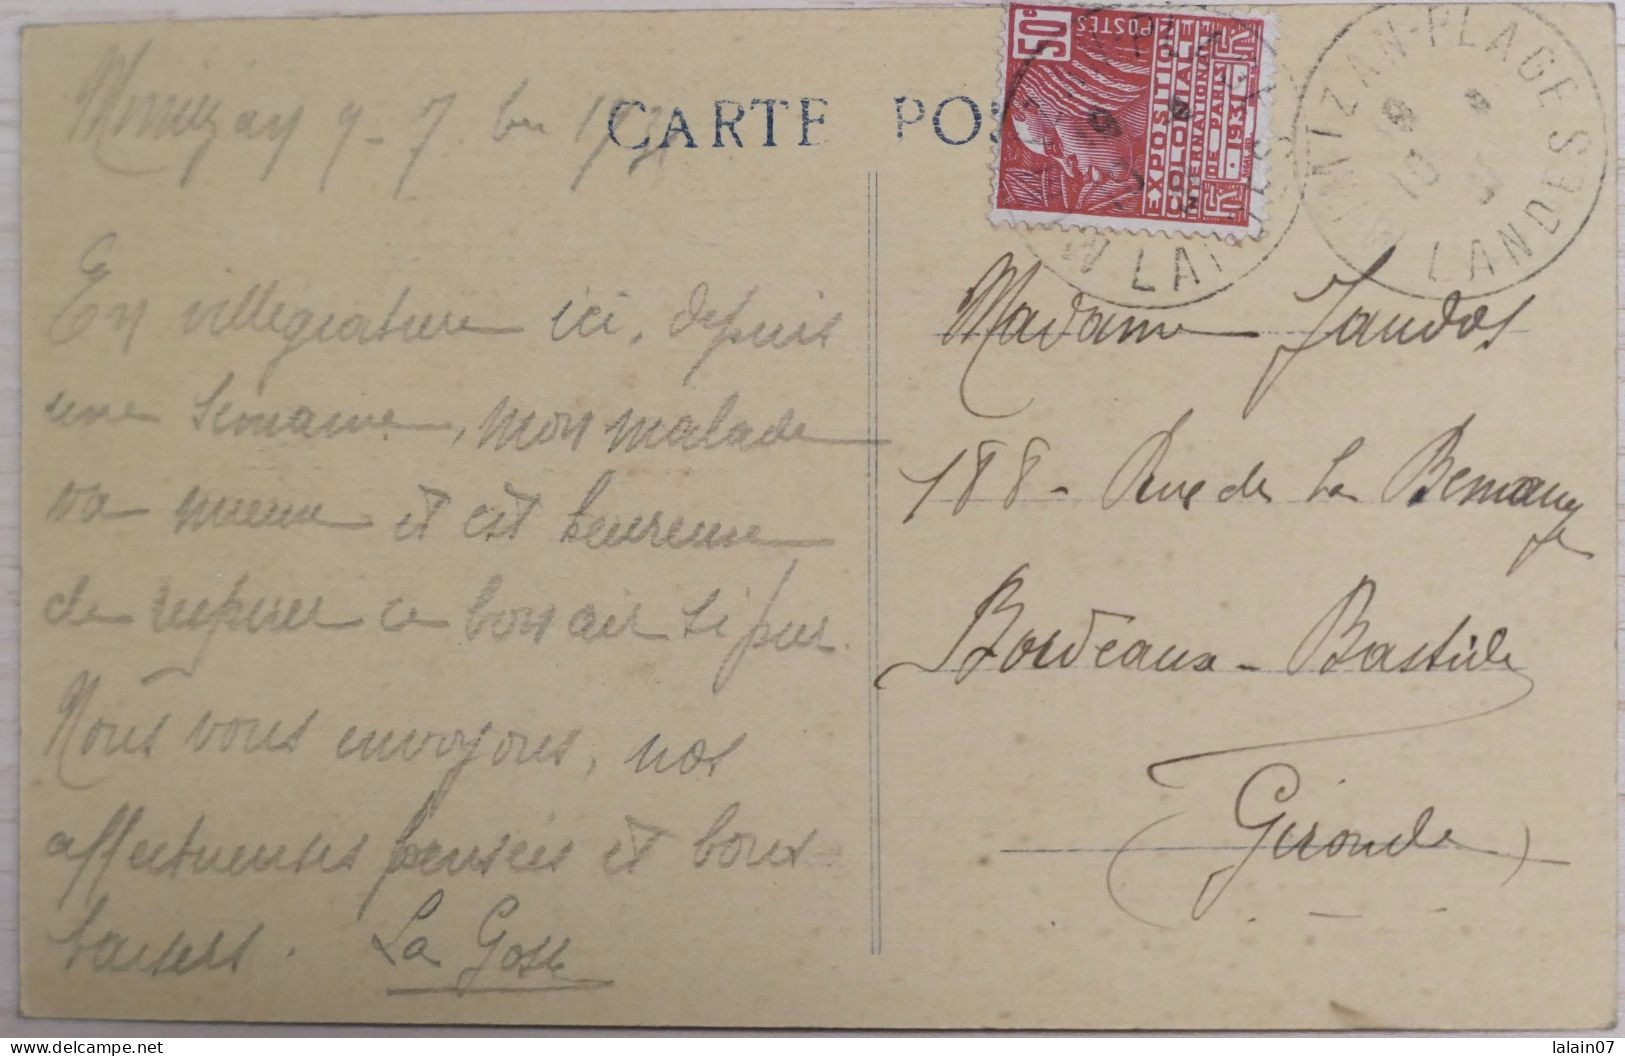 CARTE POS
Mimizan 9-7 1931
En villégiature ici, depuis
une semaine, mon malade
va mieux et est heureuse
de respirer ce bon air si pur.
Nous vous envoyons, nos
affectueuses pensées et bons
baisers. La Gosse
50c
POSTES
EXPOSITION
COLONIALE
INTERNATIONALE
DE PARIS
1931
MIMIZAN-PLAGE
LANDES
Madame Jaudos
188 - Rue de La Benauge
Bordeaux - Bastide
(Gironde)
lalain07